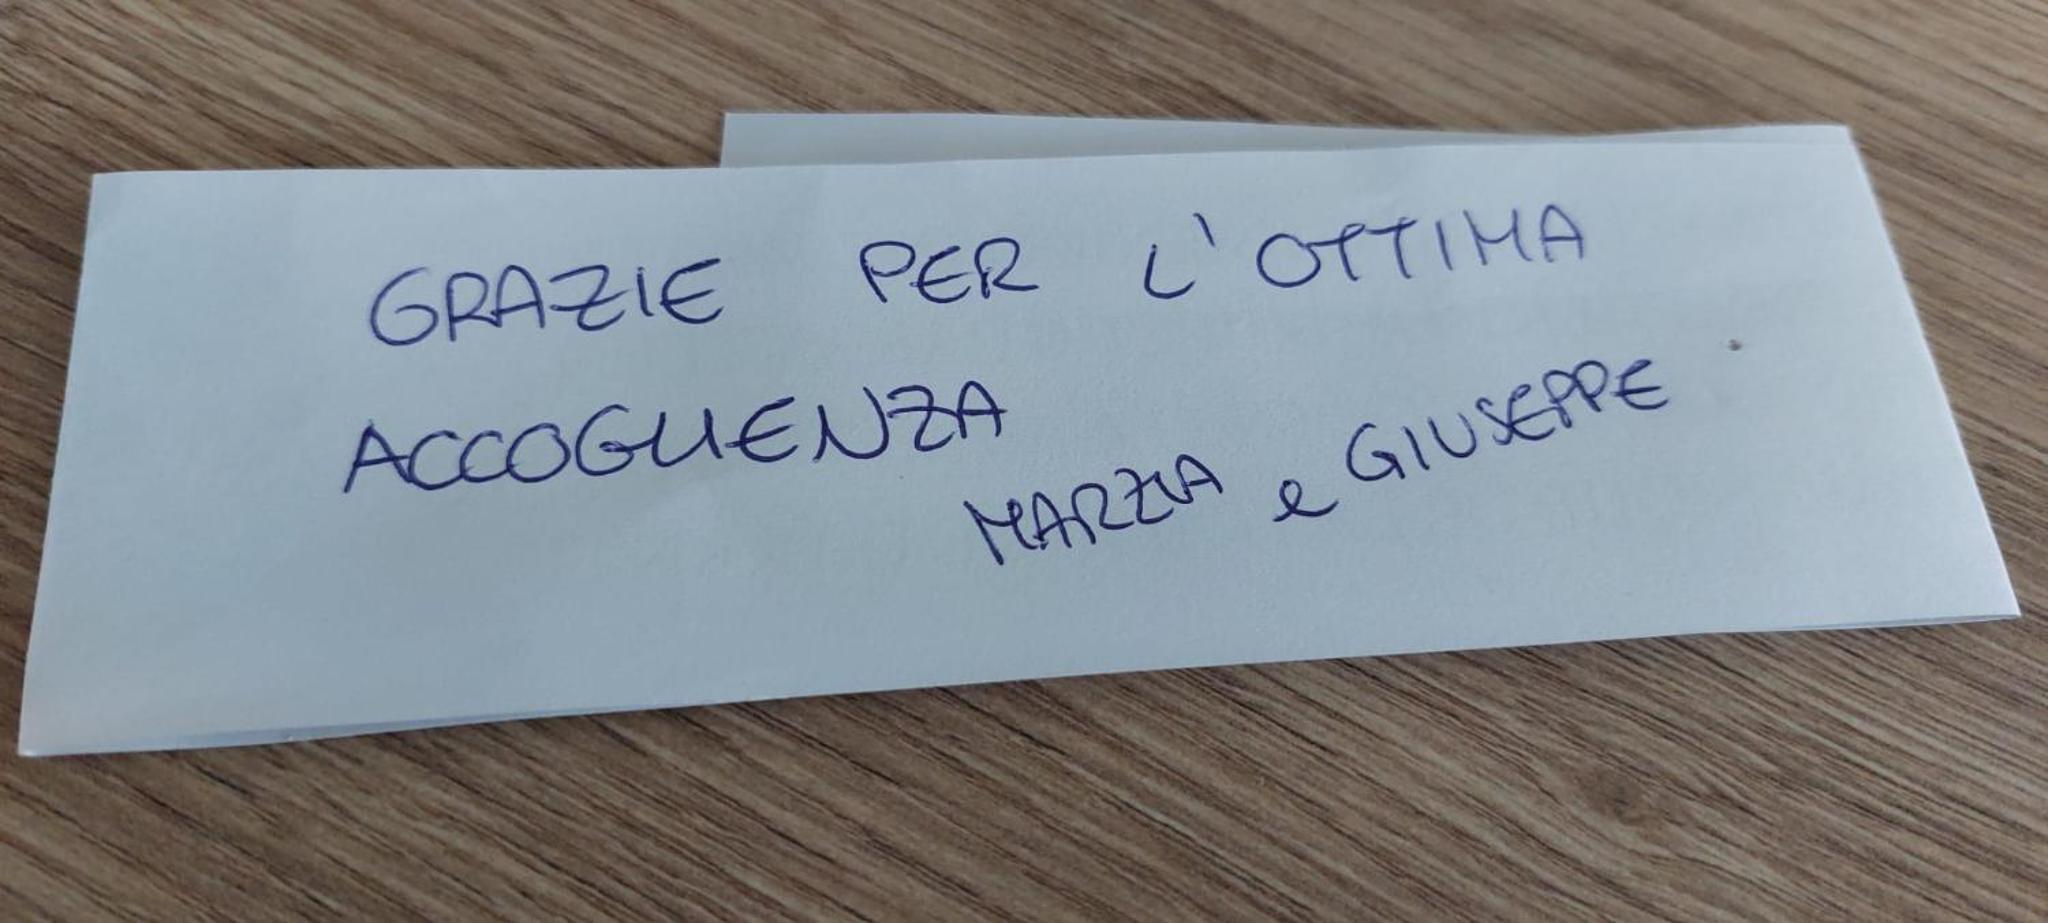 GRAZIE PER L'OTTIMA
ACCOGLIENZA
MARZIA e GIUSEPPE